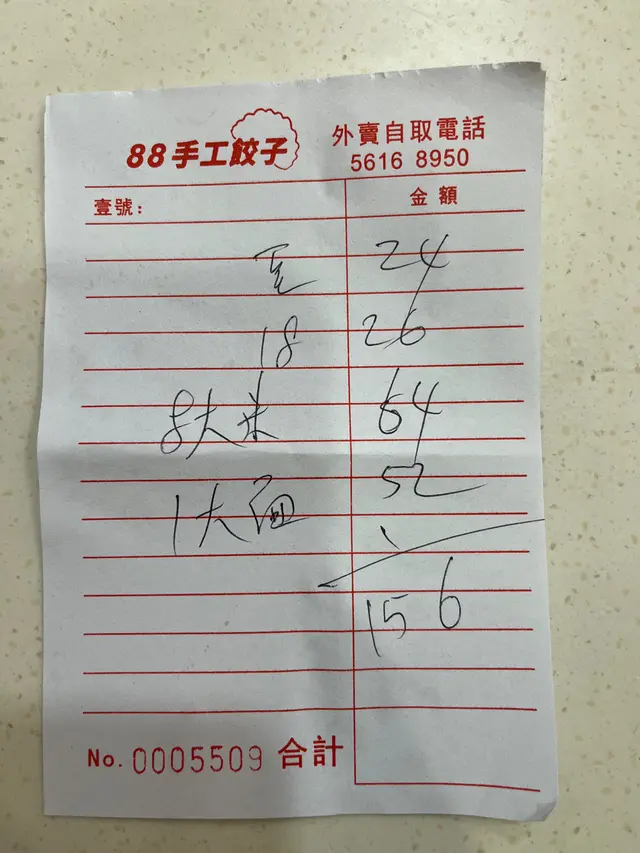 88手工餃子
外賣自取電話
5616 8950
壹號:
金額
24
18 26
8大米 64
1大面 52
156
No. 0005509 合計